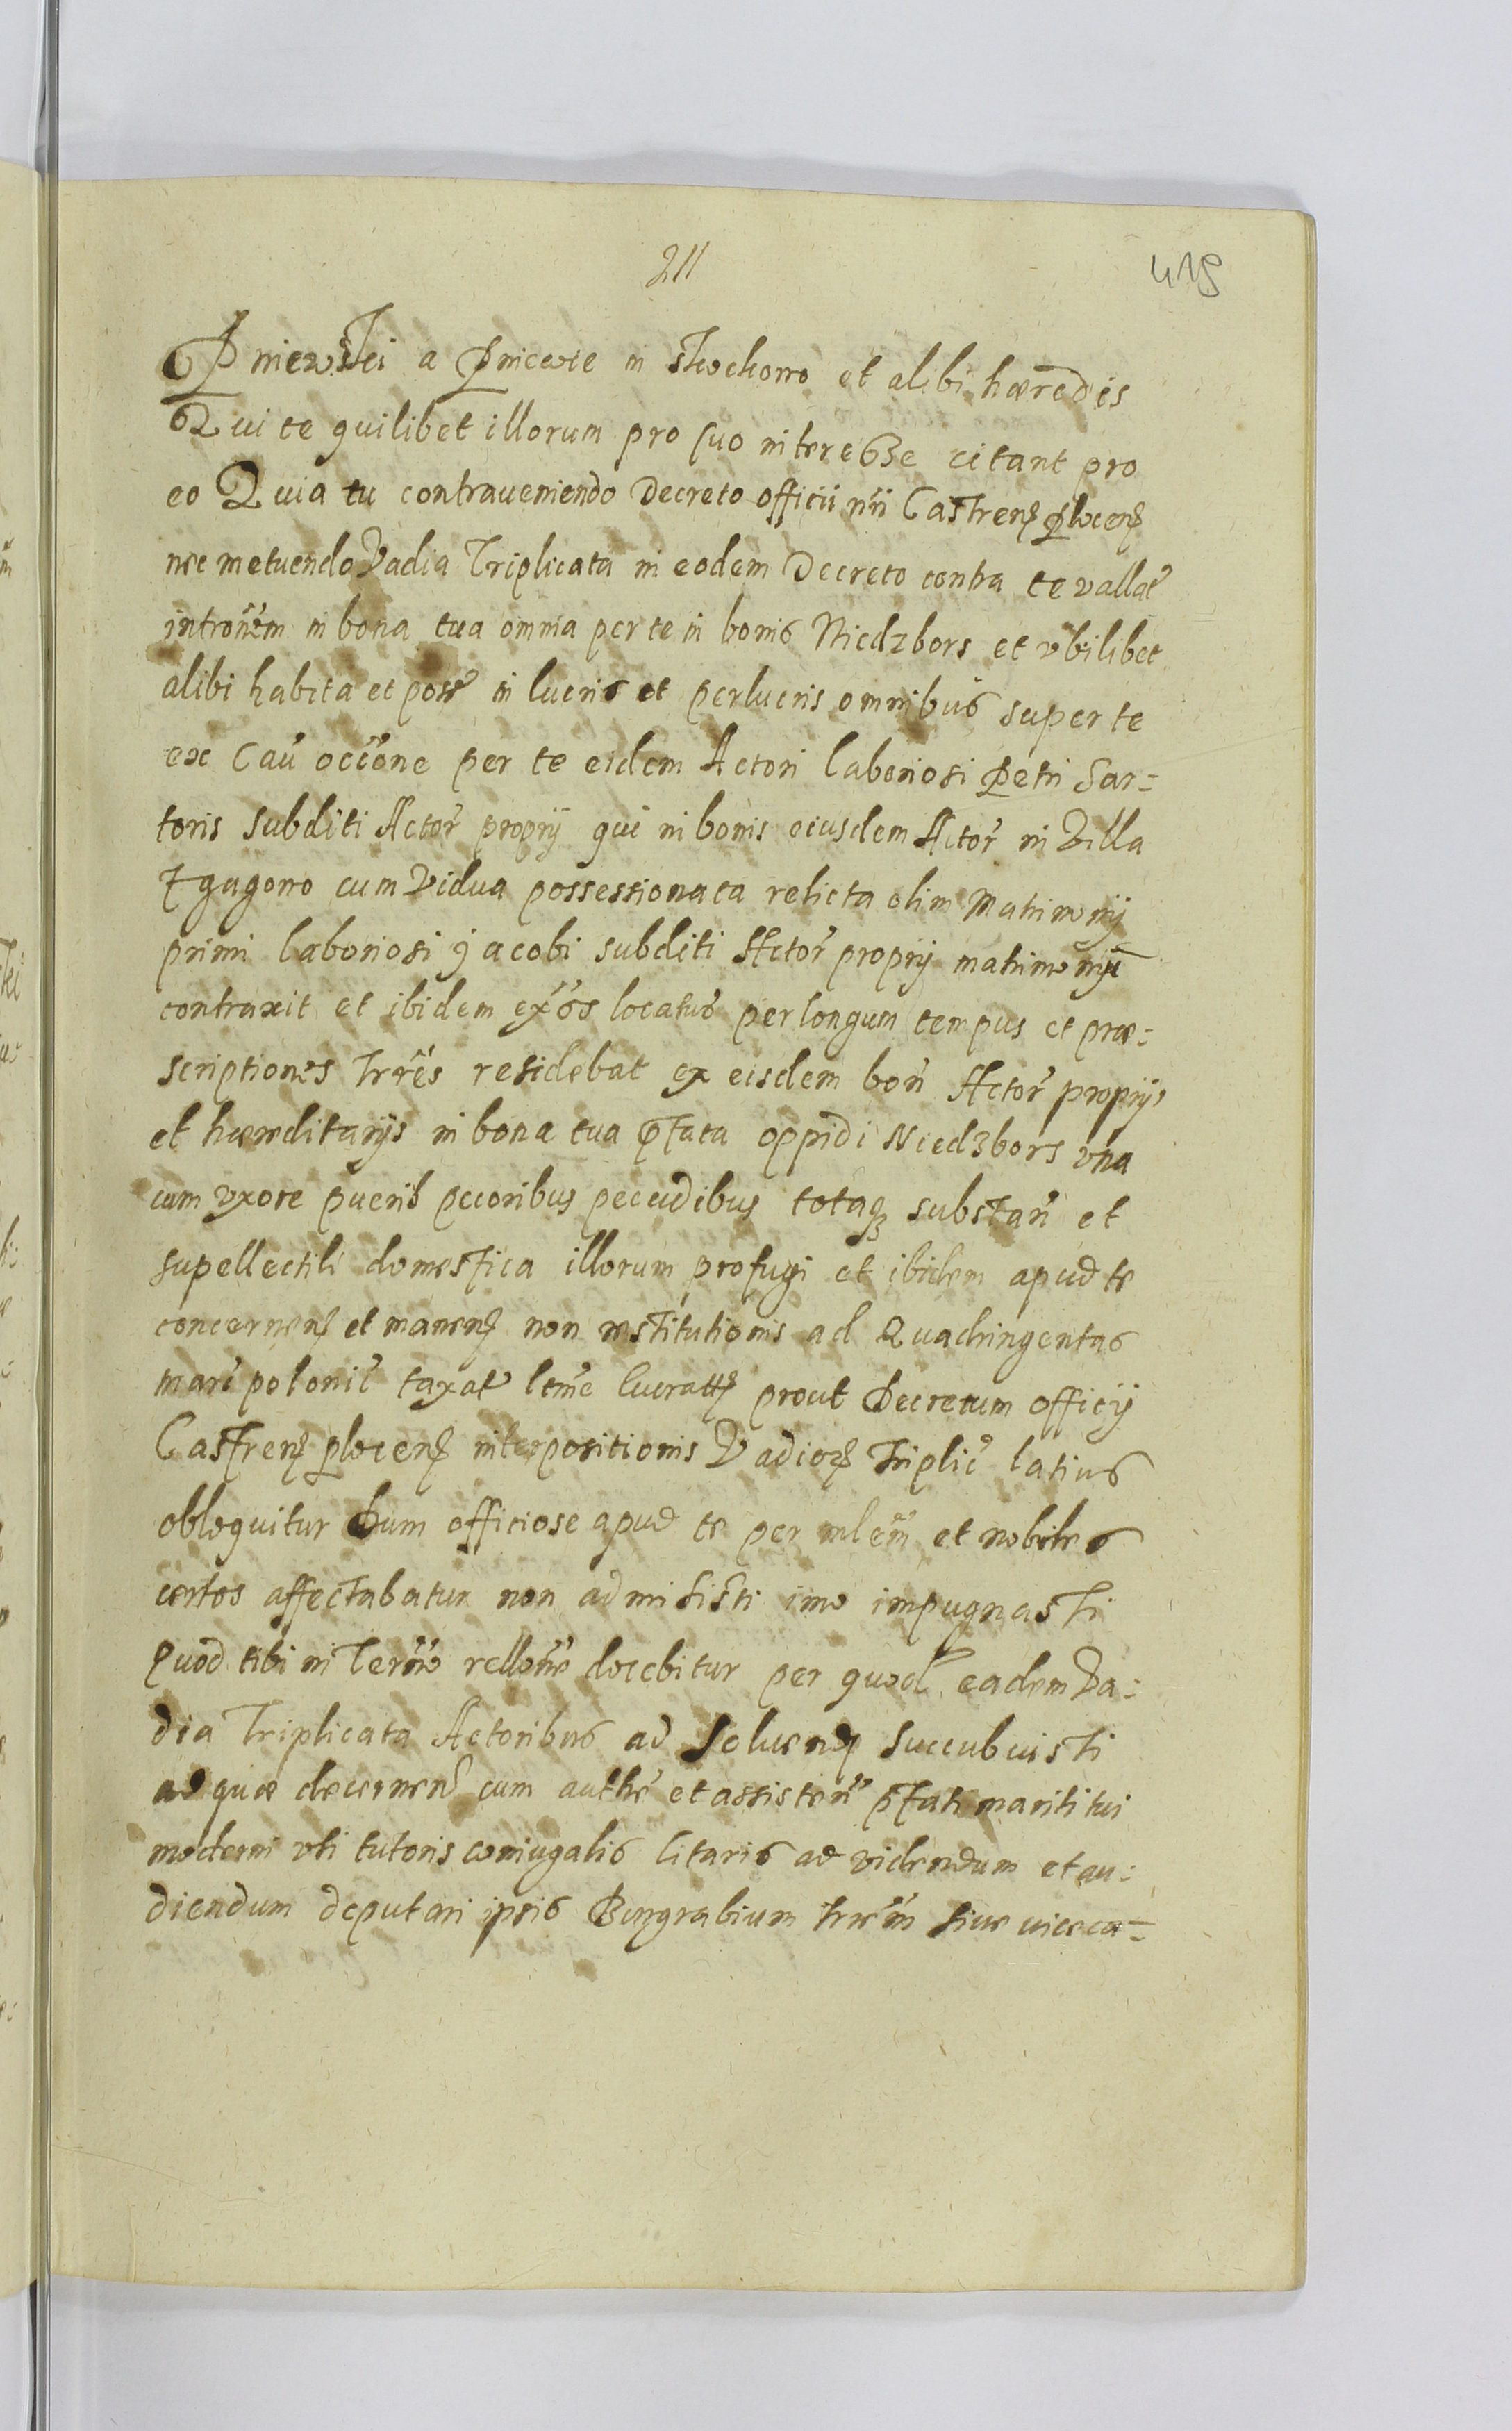 211
415
Pniewskei a Pniewie in Skvckowo et alibi hæredis
Qui te quilibet illorum pro suo interesse citant pro
eo Quia tu contraueniendo Decreto officii nři Castreñ Ploceñ
nec metuendo Vadia Triplicata in eodem Decreto contra te vallať
intronẽm in bona tua omnia per te in bonis Niedzbors et vbilibet
alibi habita et poss̃ in lucris et perlucris omnibus super te
ex Cau͂ occ͂one per te eidem Actori laboriosi Petri Sar=
toris subditi Actor͂ proprij qui in bonis eiusdem Actor͂ in Villa
cum Vidua possessionata relicta olim Matrimonij
primi laboriosi Jacobi subditi Actor͂ proprij matrimoniju͂
contraxit et ibidem ex͂os locatus per longum tempus et præ=
scriptiones Trr͂es residebat ex eisdem bon͂ Actor͂ proprijs
et hæreditarijs in bona tua p͂tata oppidi Niedzbors vna
cum vxore pueris pecoribus pecudibus totaq3 substan͂ et
supellectili domestica illorum profugi et ibidem apud te
concerneñ et maneñ non restitutionis ad Quadringentas
marc͂ polonic͂ taxat͂ ltm͂e lucrat͂ prout Decretum officij
Castreñ Ploceñ interpositionis Vadior͂ Triplic͂ latius
obloquitur Dum officiose apud te per mle͂m et nobiles
certos affectabatur non admisisti imo impugnasti
Quod tibi in Term͂o rello͂ne docebitur per quod eadem Va=
dia Triplicata Actoribus ad Soluend͂ succubuisti
ad quæ decerneñ cum authe͂ et assisteñ p͂tati mariti tui
moderni vti tutoris coniugalis Citaris ad videndum et au=
diendum deputari ipsis Burgrabium trr͂em siue viceca=